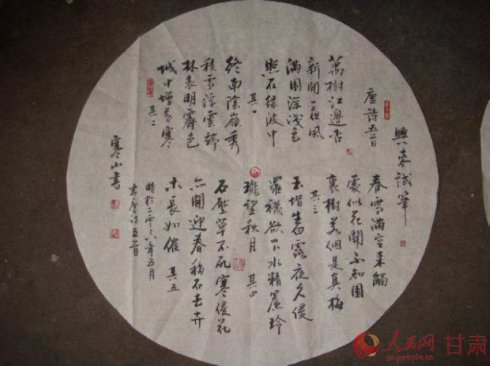 興來試筆
唐詩五首
萬樹江邊杏
新開一夜風
滿園深淺色
照在綠波中
其一
終南陰嶺秀
積雪浮雲端
林表明霽色
城中增暮寒
其二
春雪滿空來觸
處似花開不知園
裏樹若個是真梅
其三
玉階生白露夜久侵
羅襪却下水精簾玲
瓏望秋月 其四
石壓草不死寒侵花
亦開迎春移石去卉
木長如催 其五
年五月
書唐詩五首
寒山書
人民网 甘肃
gs.people.com.cn